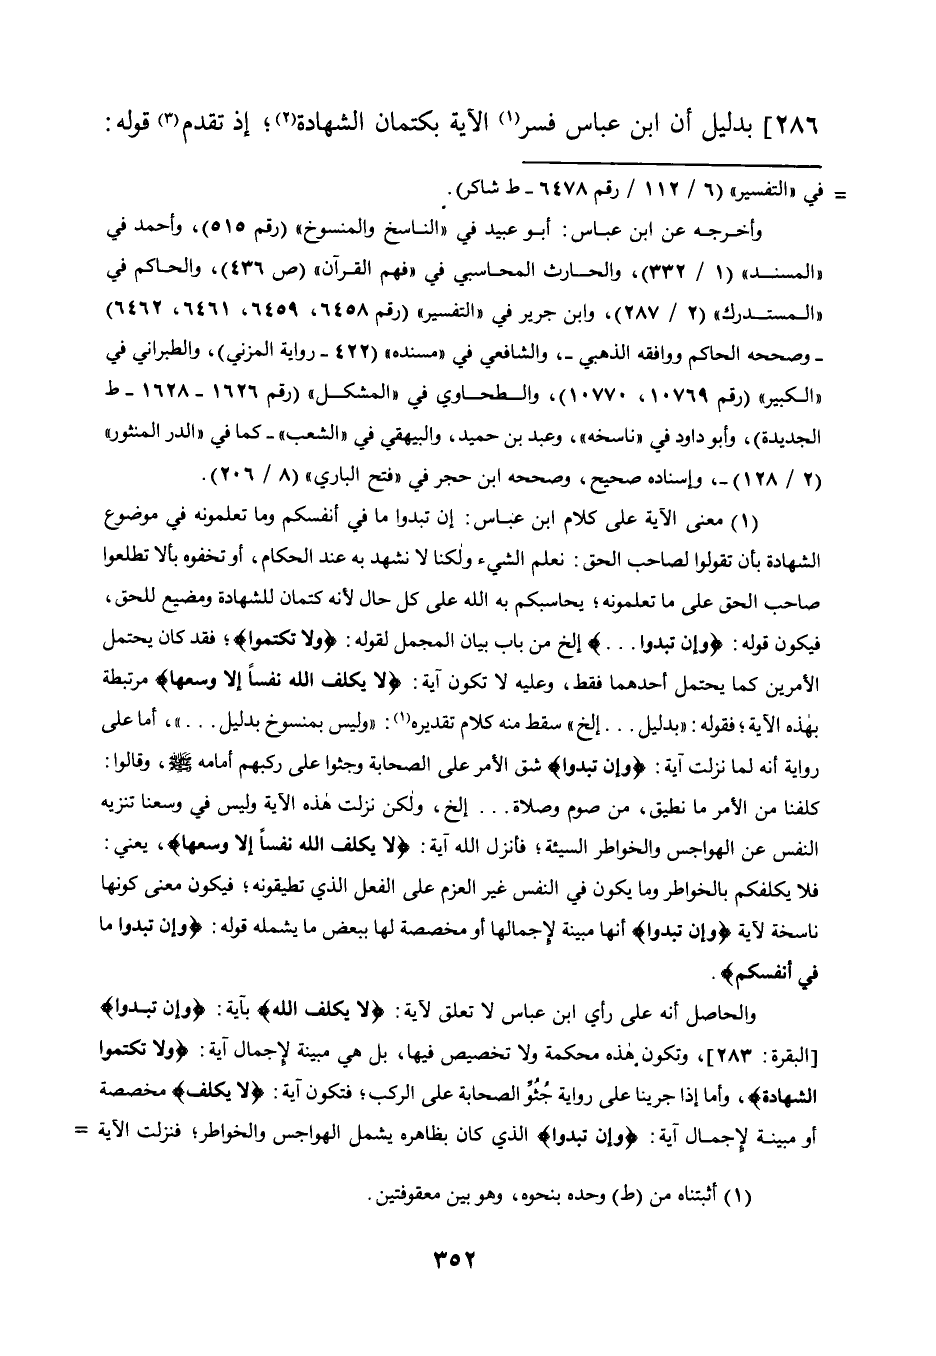 ٢٨٦] بدليل أن ابن عباس فسر(١) الآية بكتمان الشهادة(٢)؛ إذ تقدم(٣) قوله:
= في «التفسير» (٦ / ١١٢ / رقم ٦٤٧٨ ـ ط شاكر).
وأخرجه عن ابن عباس: أبو عبيد في «الناسخ والمنسوخ» (رقم ٥١٥)، وأحمد في
«المسند» (١ / ٣٣٢)، والحارث المحاسبي في «فهم القرآن» (ص ٤٣٦)، والحاكم في
«المستدرك» (٢ / ٢٨٧)، وابن جرير في «التفسير» (رقم ٦٤٥٨، ٦٤٥٩، ٦٤٦١، ٦٤٦٢)
ـ وصححه الحاكم ووافقه الذهبي ـ، والشافعي في «مسنده» (٤٢٢ ـ رواية المزني)، والطبراني في
«الكبير» (رقم ١٠٧٦٩، ١٠٧٧٠)، والطحاوي في «المشكل» (رقم ١٦٢٦ ـ ١٦٢٨ ـ ط
الجديدة)، وأبو داود في «ناسخه»، وعبد بن حميد، والبيهقي في «الشعب» ـ كما في «الدر المنثور»
(٢ / ١٢٨) ـ، وإسناده صحيح، وصححه ابن حجر في «فتح الباري» (٨ / ٢٠٦).
(١) معنى الآية على كلام ابن عباس: إن تبدوا ما في أنفسكم وما تعلمونه في موضوع
الشهادة بأن تقولوا لصاحب الحق: نعلم الشيء ولٰكنا لا نشهد به عند الحكام، أو تخفوه بألا تطلعوا
صاحب الحق على ما تعلمونه؛ يحاسبكم به الله على كل حال لأنه كتمان للشهادة ومضيع للحق،
فيكون قوله: ﴿وإن تبدوا ...﴾ إلخ من باب بيان المجمل لقوله: ﴿ولا تكتموا﴾؛ فقد كان يحتمل
الأمرين كما يحتمل أحدهما فقط، وعليه لا تكون آية: ﴿لا يكلف الله نفساً إلا وسعها﴾ مرتبطة
بهٰذه الآية؛ فقوله: «بدليل ... إلخ» سقط منه كلام تقديره(١): «وليس بمنسوخ بدليل ...»، أما على
رواية أنه لما نزلت آية: ﴿وإن تبدوا﴾ شق الأمر على الصحابة وجثوا على ركبهم أمامه ﷺ، وقالوا:
كلفنا من الأمر ما نطيق، من صوم وصلاة ... إلخ، ولٰكن نزلت هٰذه الآية وليس في وسعنا تنزيه
النفس عن الهواجس والخواطر السيئة؛ فأنزل الله آية: ﴿لا يكلف الله نفساً إلا وسعها﴾، يعني:
فلا يكلفكم بالخواطر وما يكون في النفس غير العزم على الفعل الذي تطيقونه؛ فيكون معنى كونها
ناسخة لآية ﴿وإن تبدوا﴾ أنها مبينة لإجمالها أو مخصصة لها ببعض ما يشمله قوله: ﴿وإن تبدوا ما
في أنفسكم﴾.
والحاصل أنه على رأي ابن عباس لا تعلق لآية: ﴿لا يكلف الله﴾ بآية: ﴿وإن تبدوا﴾
[البقرة: ٢٨٣]، وتكون هٰذه محكمة ولا تخصيص فيها، بل هي مبينة لإجمال آية: ﴿ولا تكتموا
الشهادة﴾، وأما إذا جرينا على رواية جُثُوِّ الصحابة على الركب؛ فتكون آية: ﴿لا يكلف﴾ مخصصة
أو مبينة لإجمال آية: ﴿وإن تبدوا﴾ الذي كان بظاهره يشمل الهواجس والخواطر؛ فنزلت الآية =
(١) أثبتناه من (ط) وحده بنحوه، وهو بين معقوفتين.
٣٥٢